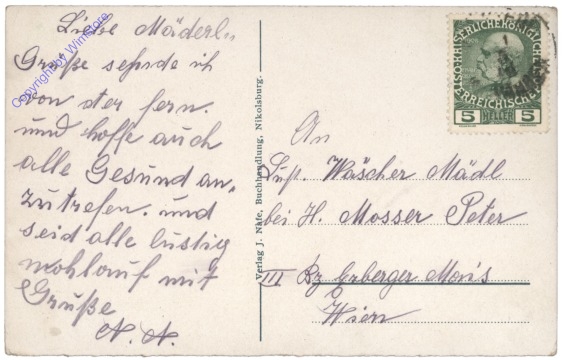 Liebe Mäderl.
Grüße sehnde ich
von der fern.
und hoffe auch
alle Gesund an,
zutrefen. und
seid alle lustig
wohlauf mit
Grüße
N. N.
Copyright by Winstore
Verlag J. Nafe, Buchhandlung, Nikolsburg.
KAISERLICHE KÖNIGLICHE
ÖSTERREICHISCHE
5 HELLER 5
An
Wäscher Mädl
bei H. Mosser Peter
III Bz
Wien